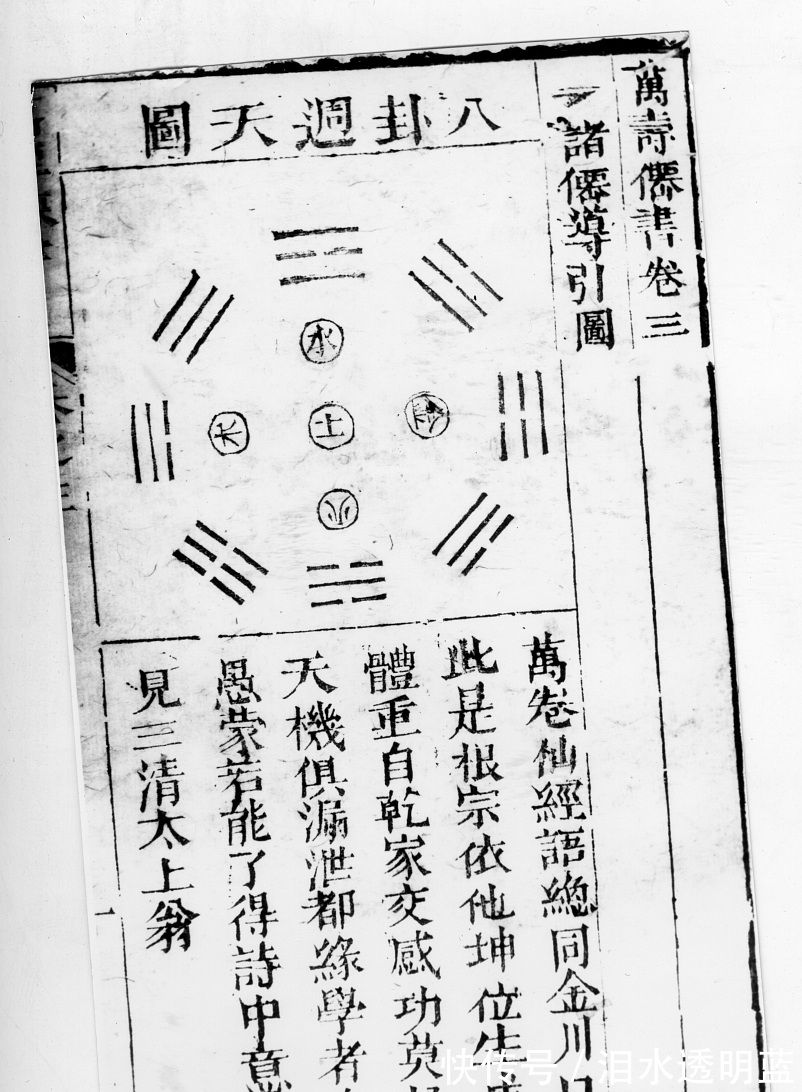 萬壽僊書卷三
諸僊導引圖
八卦週天圖
水
木
土
金
火
萬卷仙經語總同金川
此是根宗依他坤位生
體重自乾家交感功莫
天機俱漏泄都緣學者
愚蒙若能了得詩中意
見三清太上翁
一
快传号/泪水透明蓝